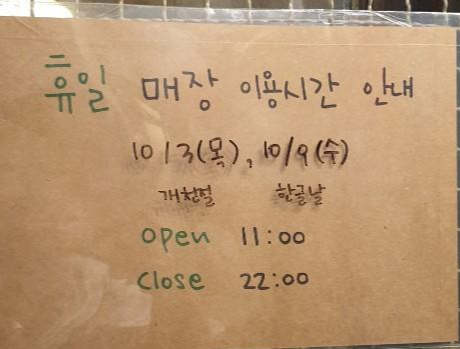 휴일 매장 이용시간 안내
10/3(목), 10/9(수)
개천절 한글날
open 11:00
close 22:00